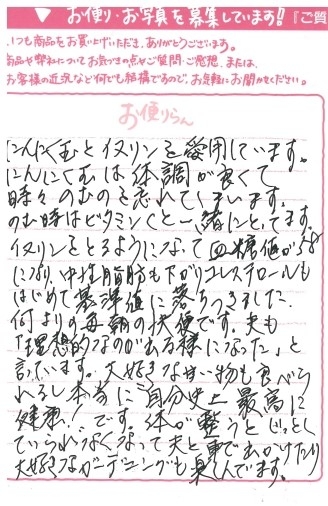 ▼ お便り・お写真を募集しています!! 『ご質
いつも商品をお買い上げいただき、ありがとうございます。
商品や弊社についてお気づきの点やご質問・ご感想、または、
お客様の近況など何でも結構ですので、お気軽にお聞かせください。
お便りらん
にんにくむとイヌリンを愛用しています。
にんにくむは体調が良くて
時々のむのを忘れてしまいます。
のむ時はビタミンCと一緒にとってます。
イヌリンをとるようになって血糖値が
になり、中性脂肪も下がりコレステロールも
はじめて基準値に落ちつきました。
何よりの毎朝の快便です。夫も
「理想的なのがある様になった」と
言っています。大好きな甘い物も食べら
れるし本当に「自分史上最高に
健康!」です。体が整うとじっとし
ていられなくなって夫と車で出かけたり
大好きなガーデニングも楽しんでます。